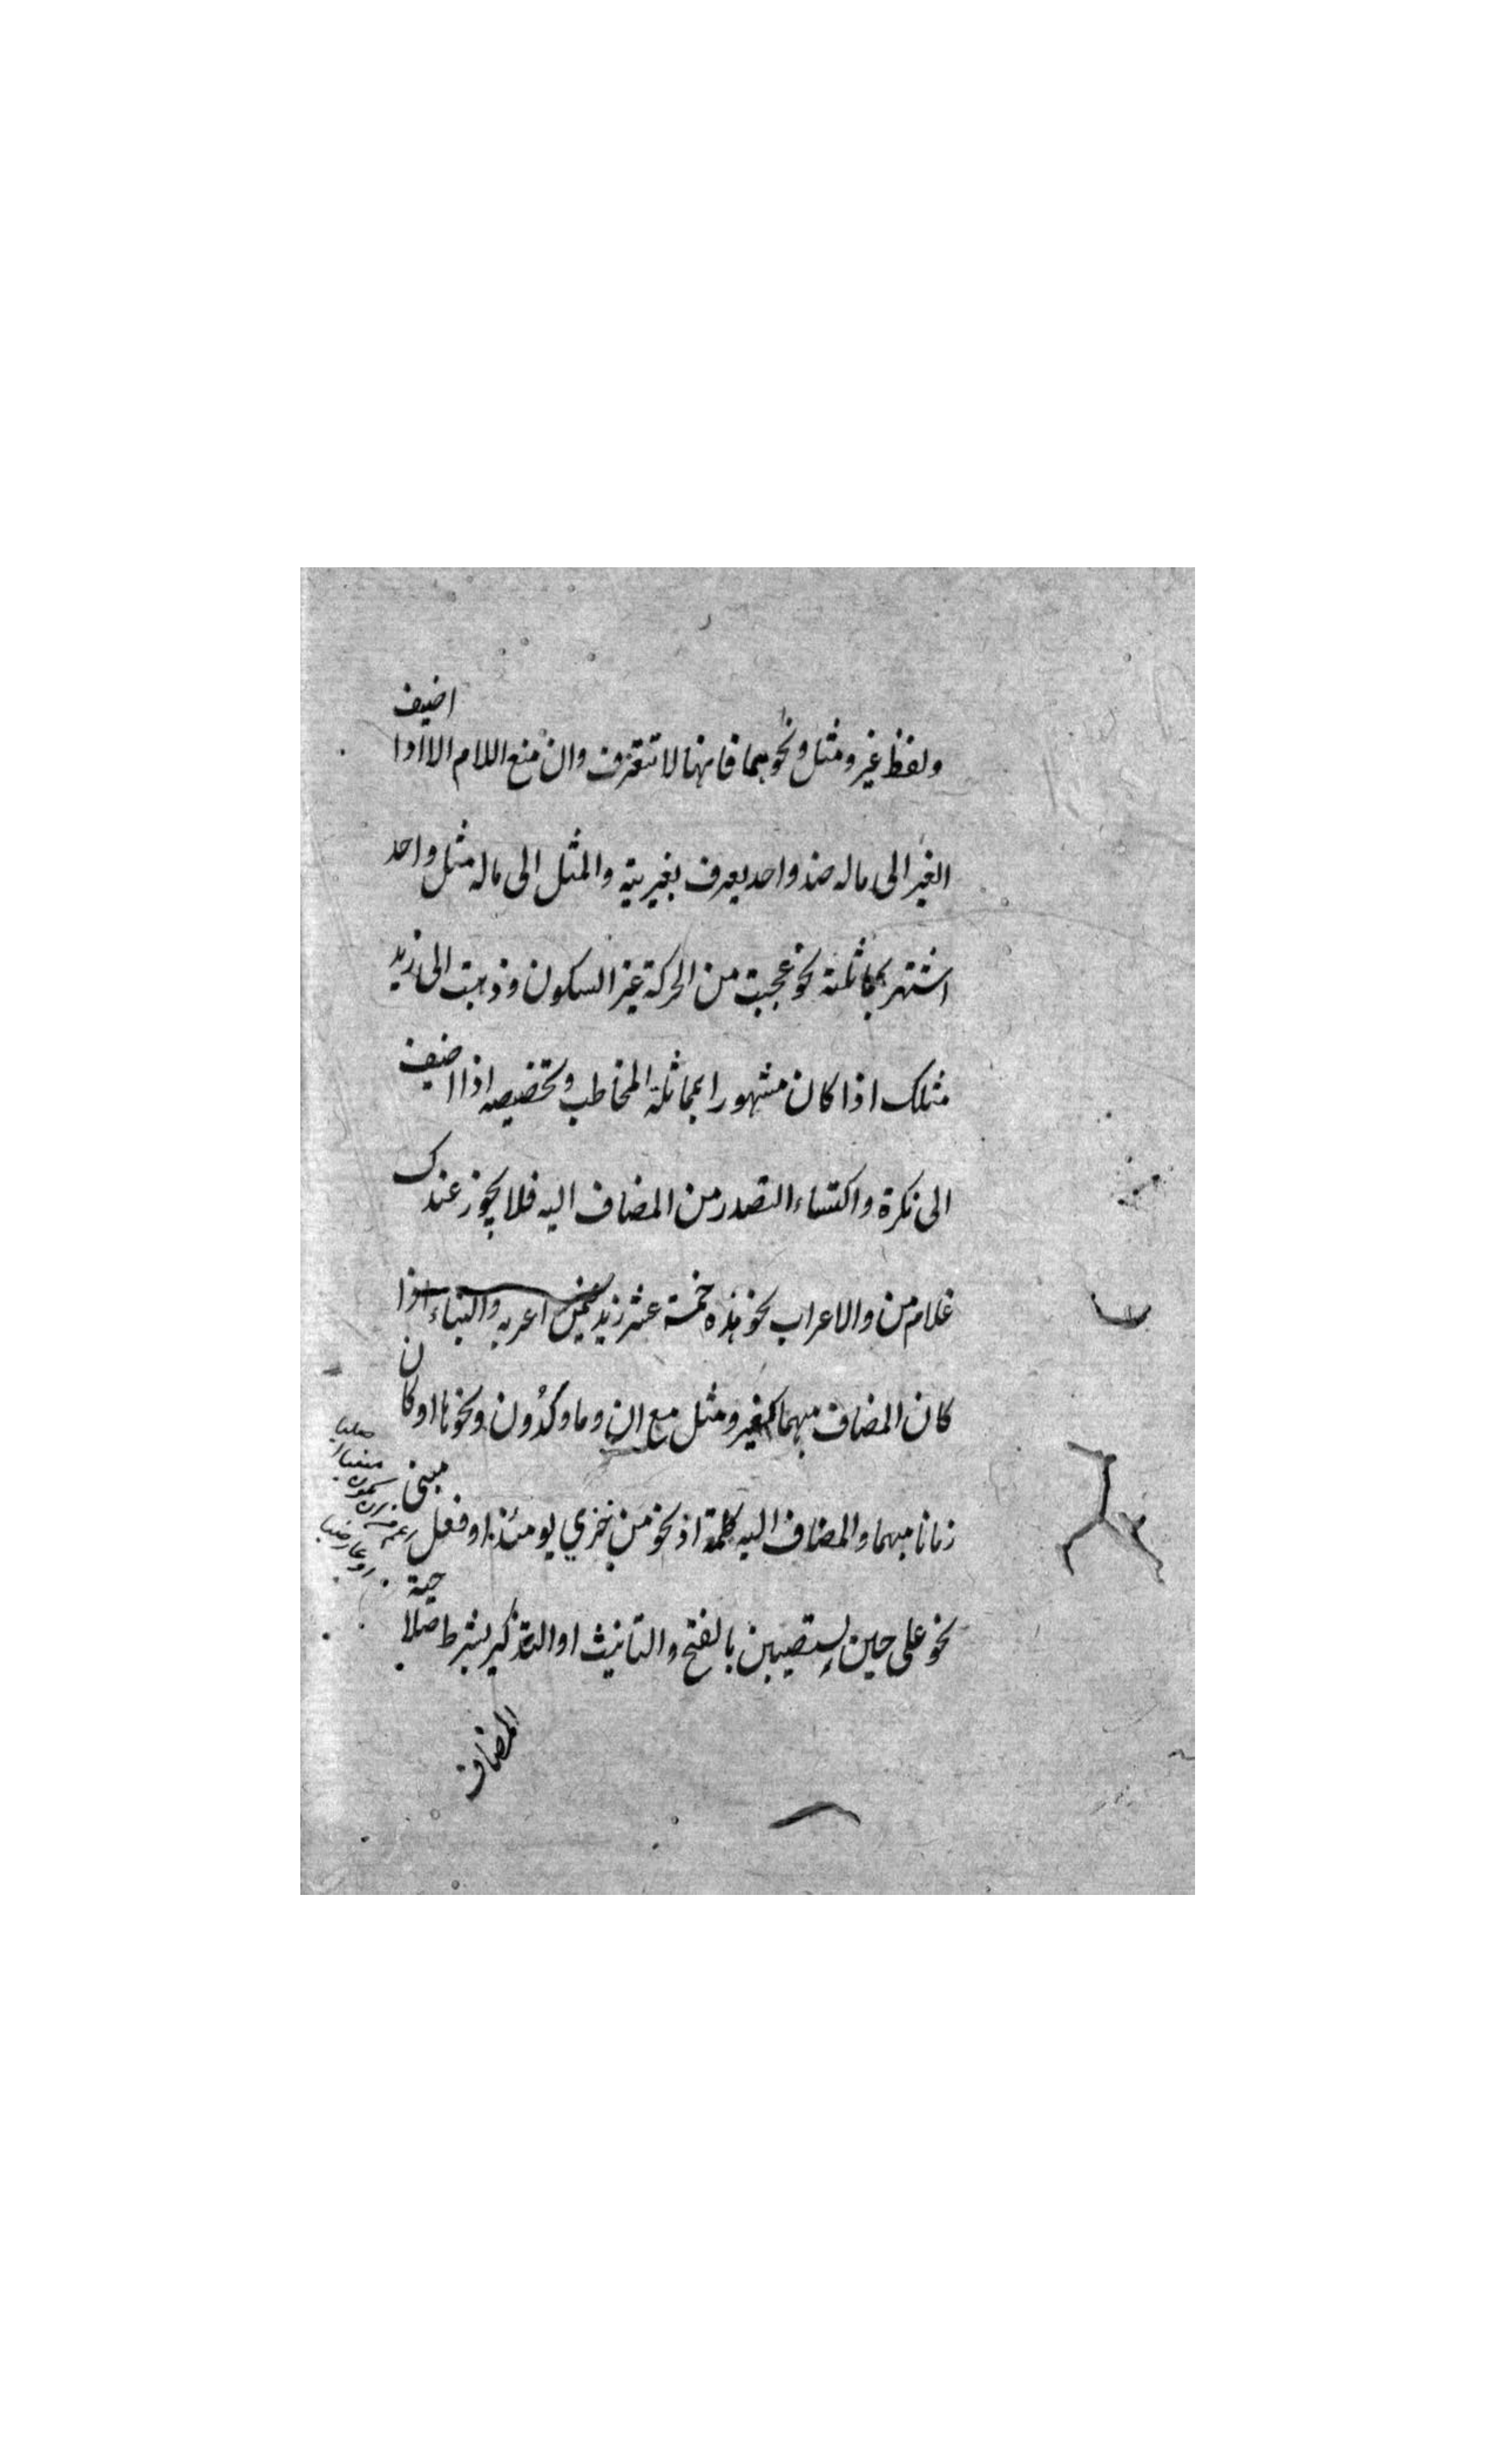 ولفظ غير ومثل ونحوهما فانها لا تتعرف وان منع اللام الا اذا اضيف
الغير الى ماله ضد واحد يعرف بغيريته والمثل الى ماله مثل واحد
اشتهر بمماثلته نحو عجبت من الحركة غير السكون وذهبت الى زيد
مثلك اذا كان مشهورا بمماثلة المخاطب وتخصيصه اذا اضيف
الى نكرة واكتساء التصدر من المضاف اليه فلا يجوز عندك
غلام من والاعراب نحو هذه خمسة عشر زيد فيمن اعربه والبناء اذا
كان المضاف مبهما كغير ومثل مع ان وما وكدون ونحوها او كان
زمانا مبهما والمضاف اليه كلمة اذ نحو من خزي يومئذ او فعل مبني
نحو على حين يستصبين بالفتح والتانيث او التذكير بشرط صلاحية
المضاف